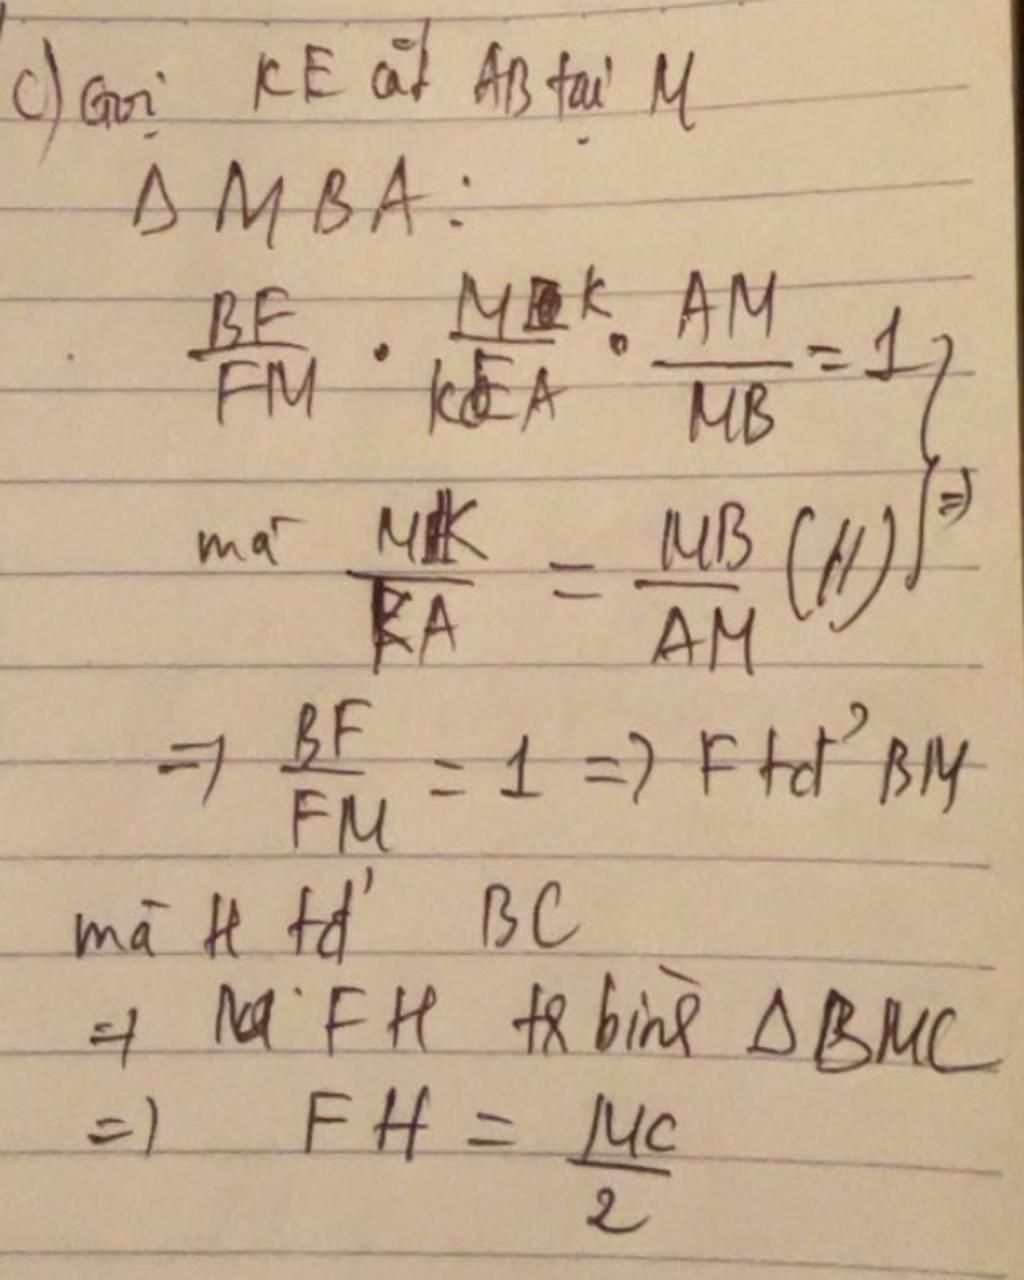 c) Gọi KE cắt AB tại M
Δ MBA:
BF/FM · MK/KA · AM/MB = 1
mà MK/KA = MB/AM (//) =>
=> BF/FM = 1 => F tđ' BM
mà H tđ' BC
=> FH tr bình Δ BMC
=> FH = MC/2